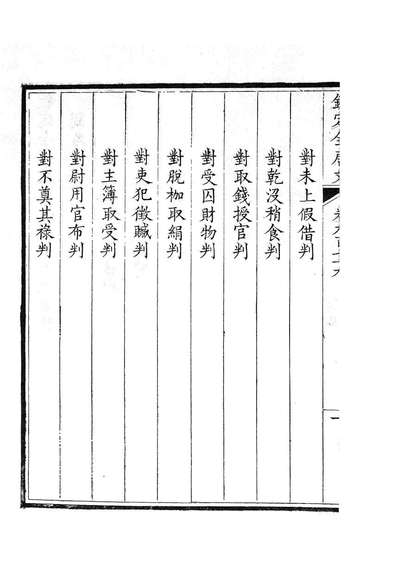 對未上假借判
對乾沒稍食判
對取錢授官判
對受囚財物判
對脫枷取絹判
對吏犯徵贓判
對主簿取受判
對尉用官布判
對不奠其祿判